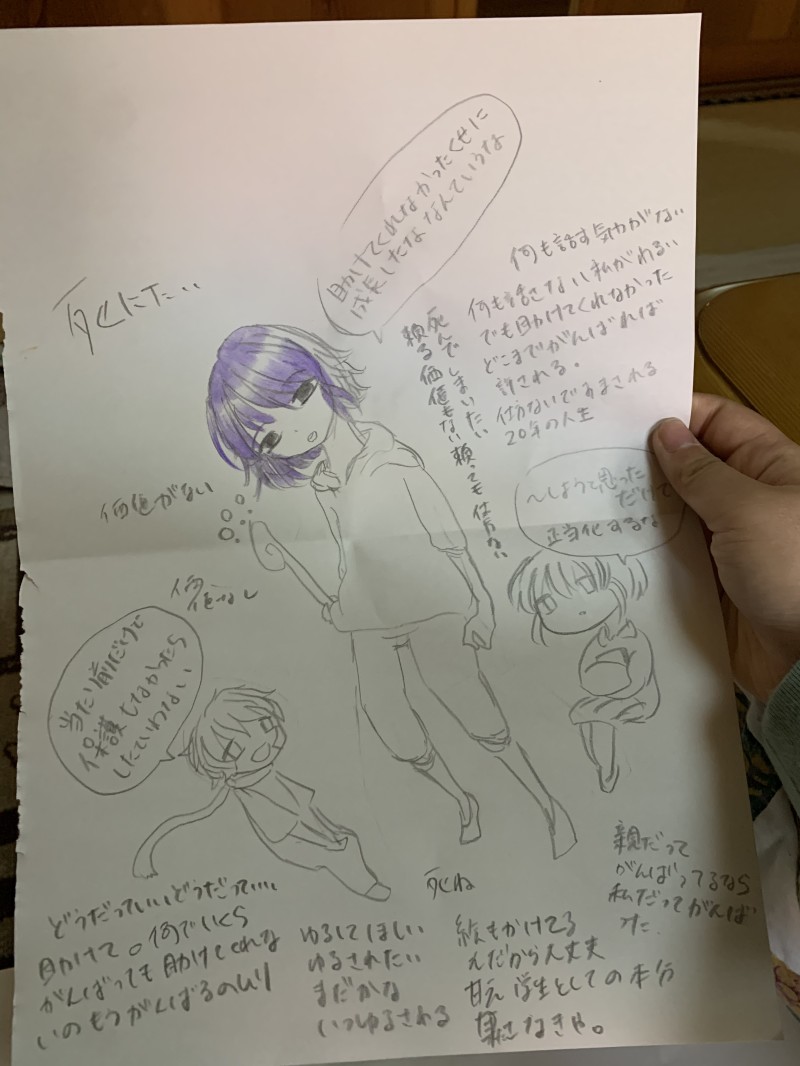 助けてくれなかったくせに
成長したななんていうな
死にた...
何も話す気力がない
何も話さない私がわるい
でも助けてくれなかった
どこまでがんばれば
許される。
20年の人生
死んでしまいたい
頼る価値もない頼っても仕方ない
〜しようと思った
だけで
正当化するな
価値がない
価値なし
当たり前だけで
保護
死ね
親だって
がんばってるなら
私だってがんば
った.
どうだっていいどうだっていい
助けて。何でいくら
がんばっても助けてくれな
いのもうがんばるのムリ
ゆるしてほしい
ゆるされたい
まだかな
いつゆるされる
絵もかけてる
んだから大丈夫
学生としての本分
なきゃ。